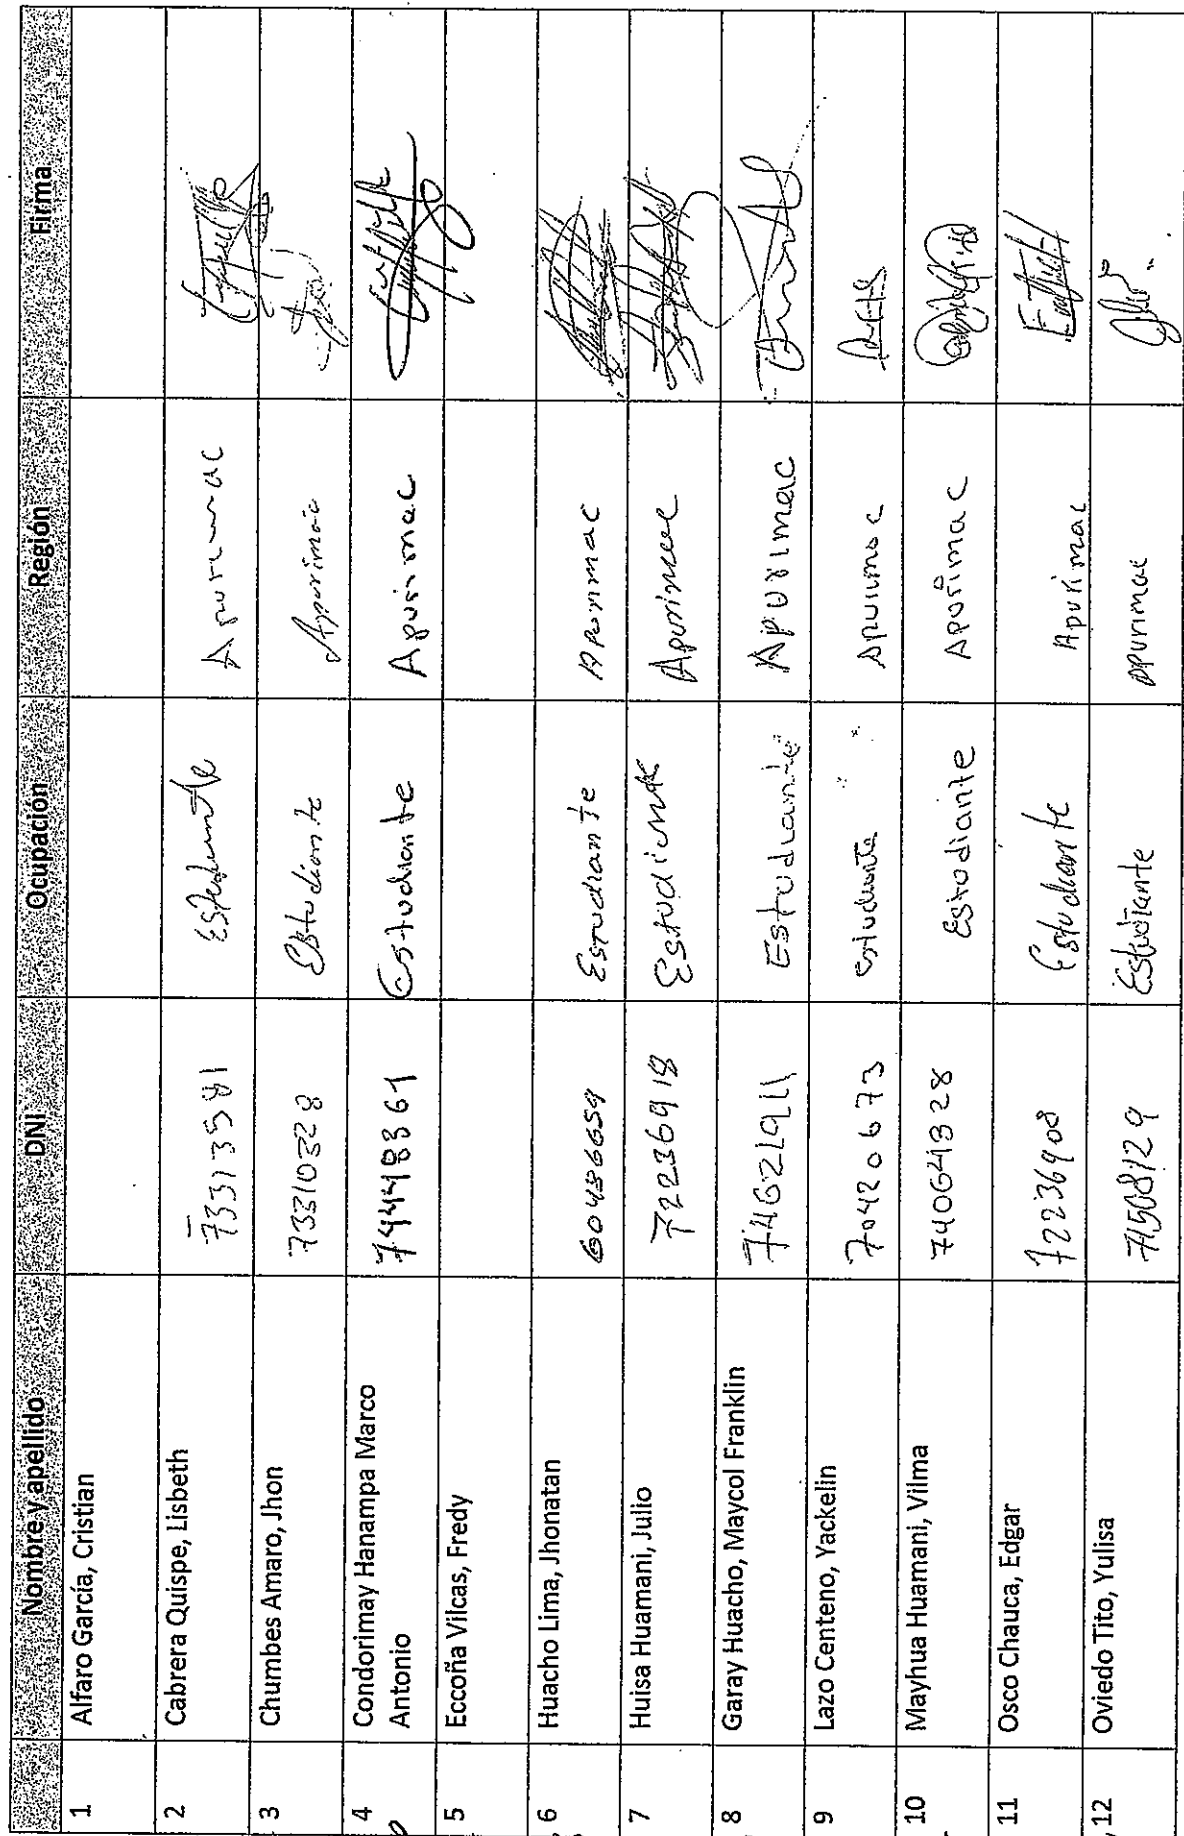 Nombre y apellido DNI Ocupación Región Firma
1 Alfaro García, Cristian
2 Cabrera Quispe, Lisbeth 73313581 Estudiante Apurimac
3 Chumbes Amaro, Jhon 73310328 Estudiante Apurimac
4 Condorimay Hanampa Marco Antonio 74448361 Estudiante Apurimac
5 Eccoña Vilcas, Fredy
6 Huacho Lima, Jhonatan 60486659 Estudiante Apurimac
7 Huisa Huamani, Julio 72236918 Estudiante Apurimac
8 Garay Huacho, Maycol Franklin 74621911 Estudiante Apurimac
9 Lazo Centeno, Yackelin 70420673 estudiante Apurimac
10 Mayhua Huamani, Vilma 74064328 Estudiante Apurimac
11 Osco Chauca, Edgar 72236908 Estudiante Apurimac
12 Oviedo Tito, Yulisa 71508129 Estudiante Apurimac